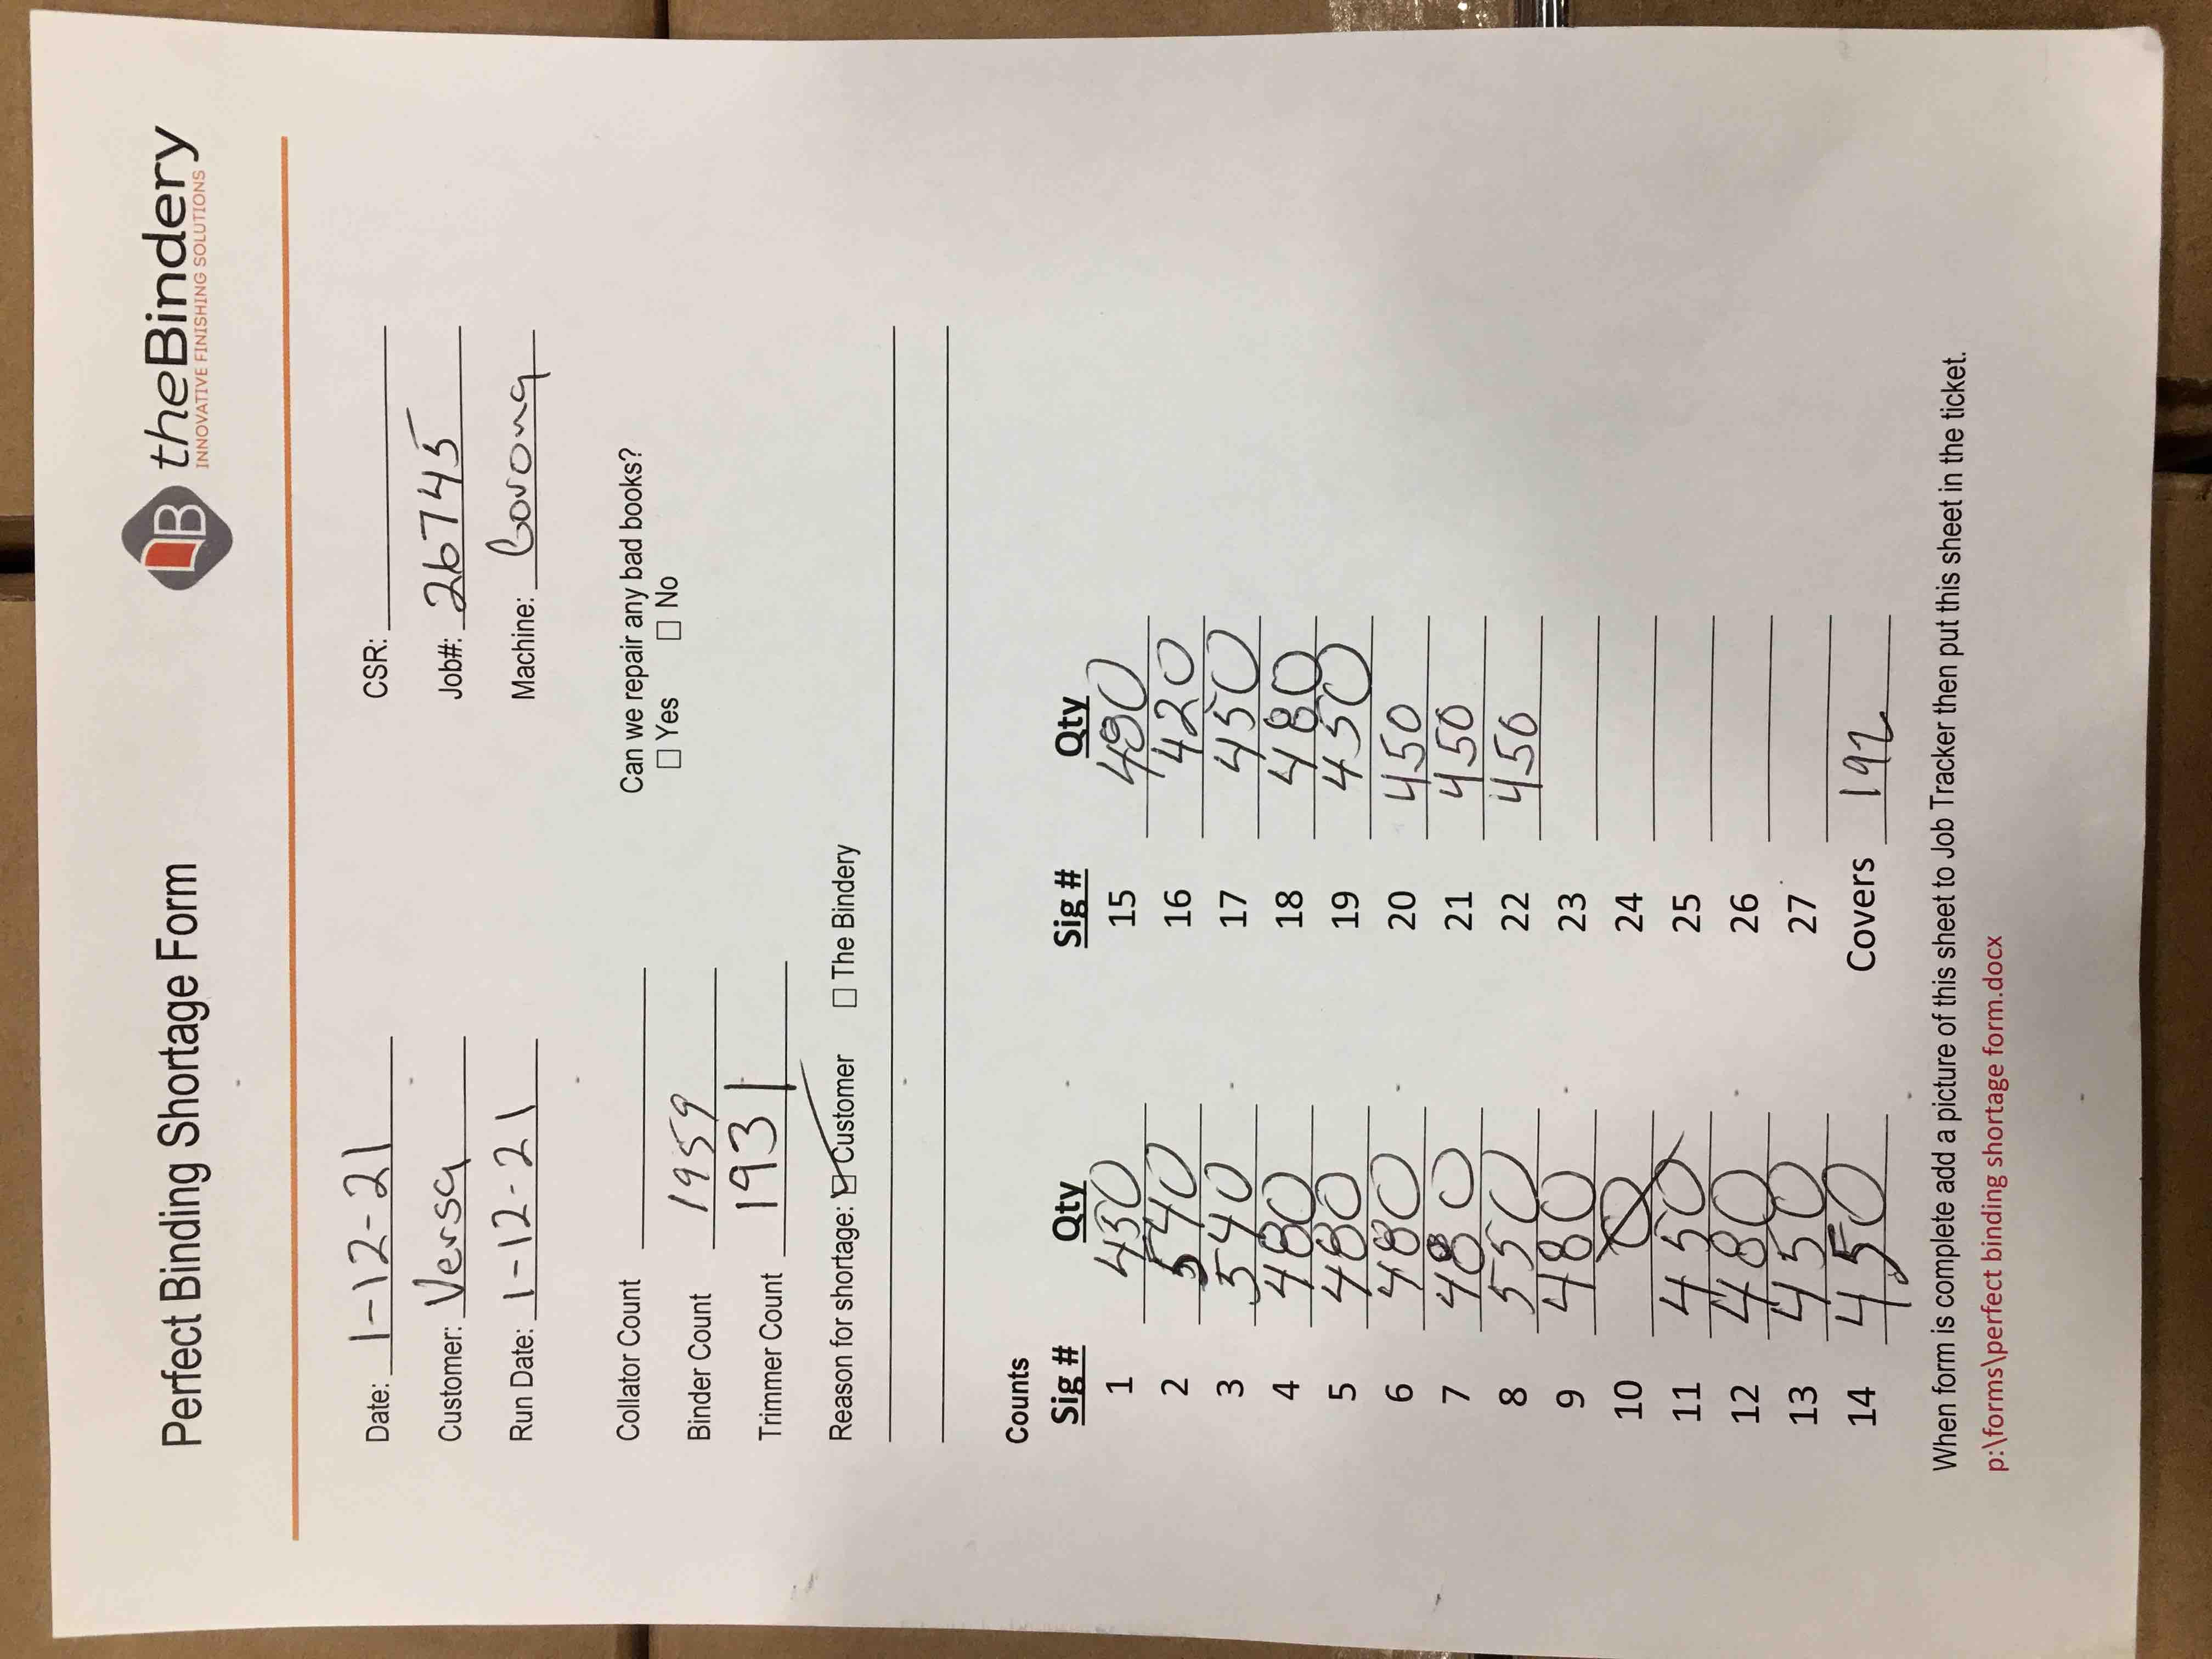 Perfect Binding Shortage Form
B theBindery
INNOVATIVE FINISHING SOLUTIONS
Date: 1-12-21 CSR:
Customer: Versa Job#: 26745
Run Date: 1-12-21 Machine: Corona
Collator Count Can we repair any bad books?
☐ Yes ☐ No
Binder Count 1959
Trimmer Count 1931
Reason for shortage: ☑ Customer ☐ The Bindery
Counts
Sig # Qty Sig # Qty
1 430 15 480
2 540 16 420
3 540 17 450
4 480 18 480
5 480 19 450
6 480 20 450
7 480 21 450
8 550 22 450
9 480 23
10 Ø 24
11 450 25
12 480 26
13 450 27
14 450 Covers 192
When form is complete add a picture of this sheet to Job Tracker then put this sheet in the ticket.
p:\forms\perfect binding shortage form.docx